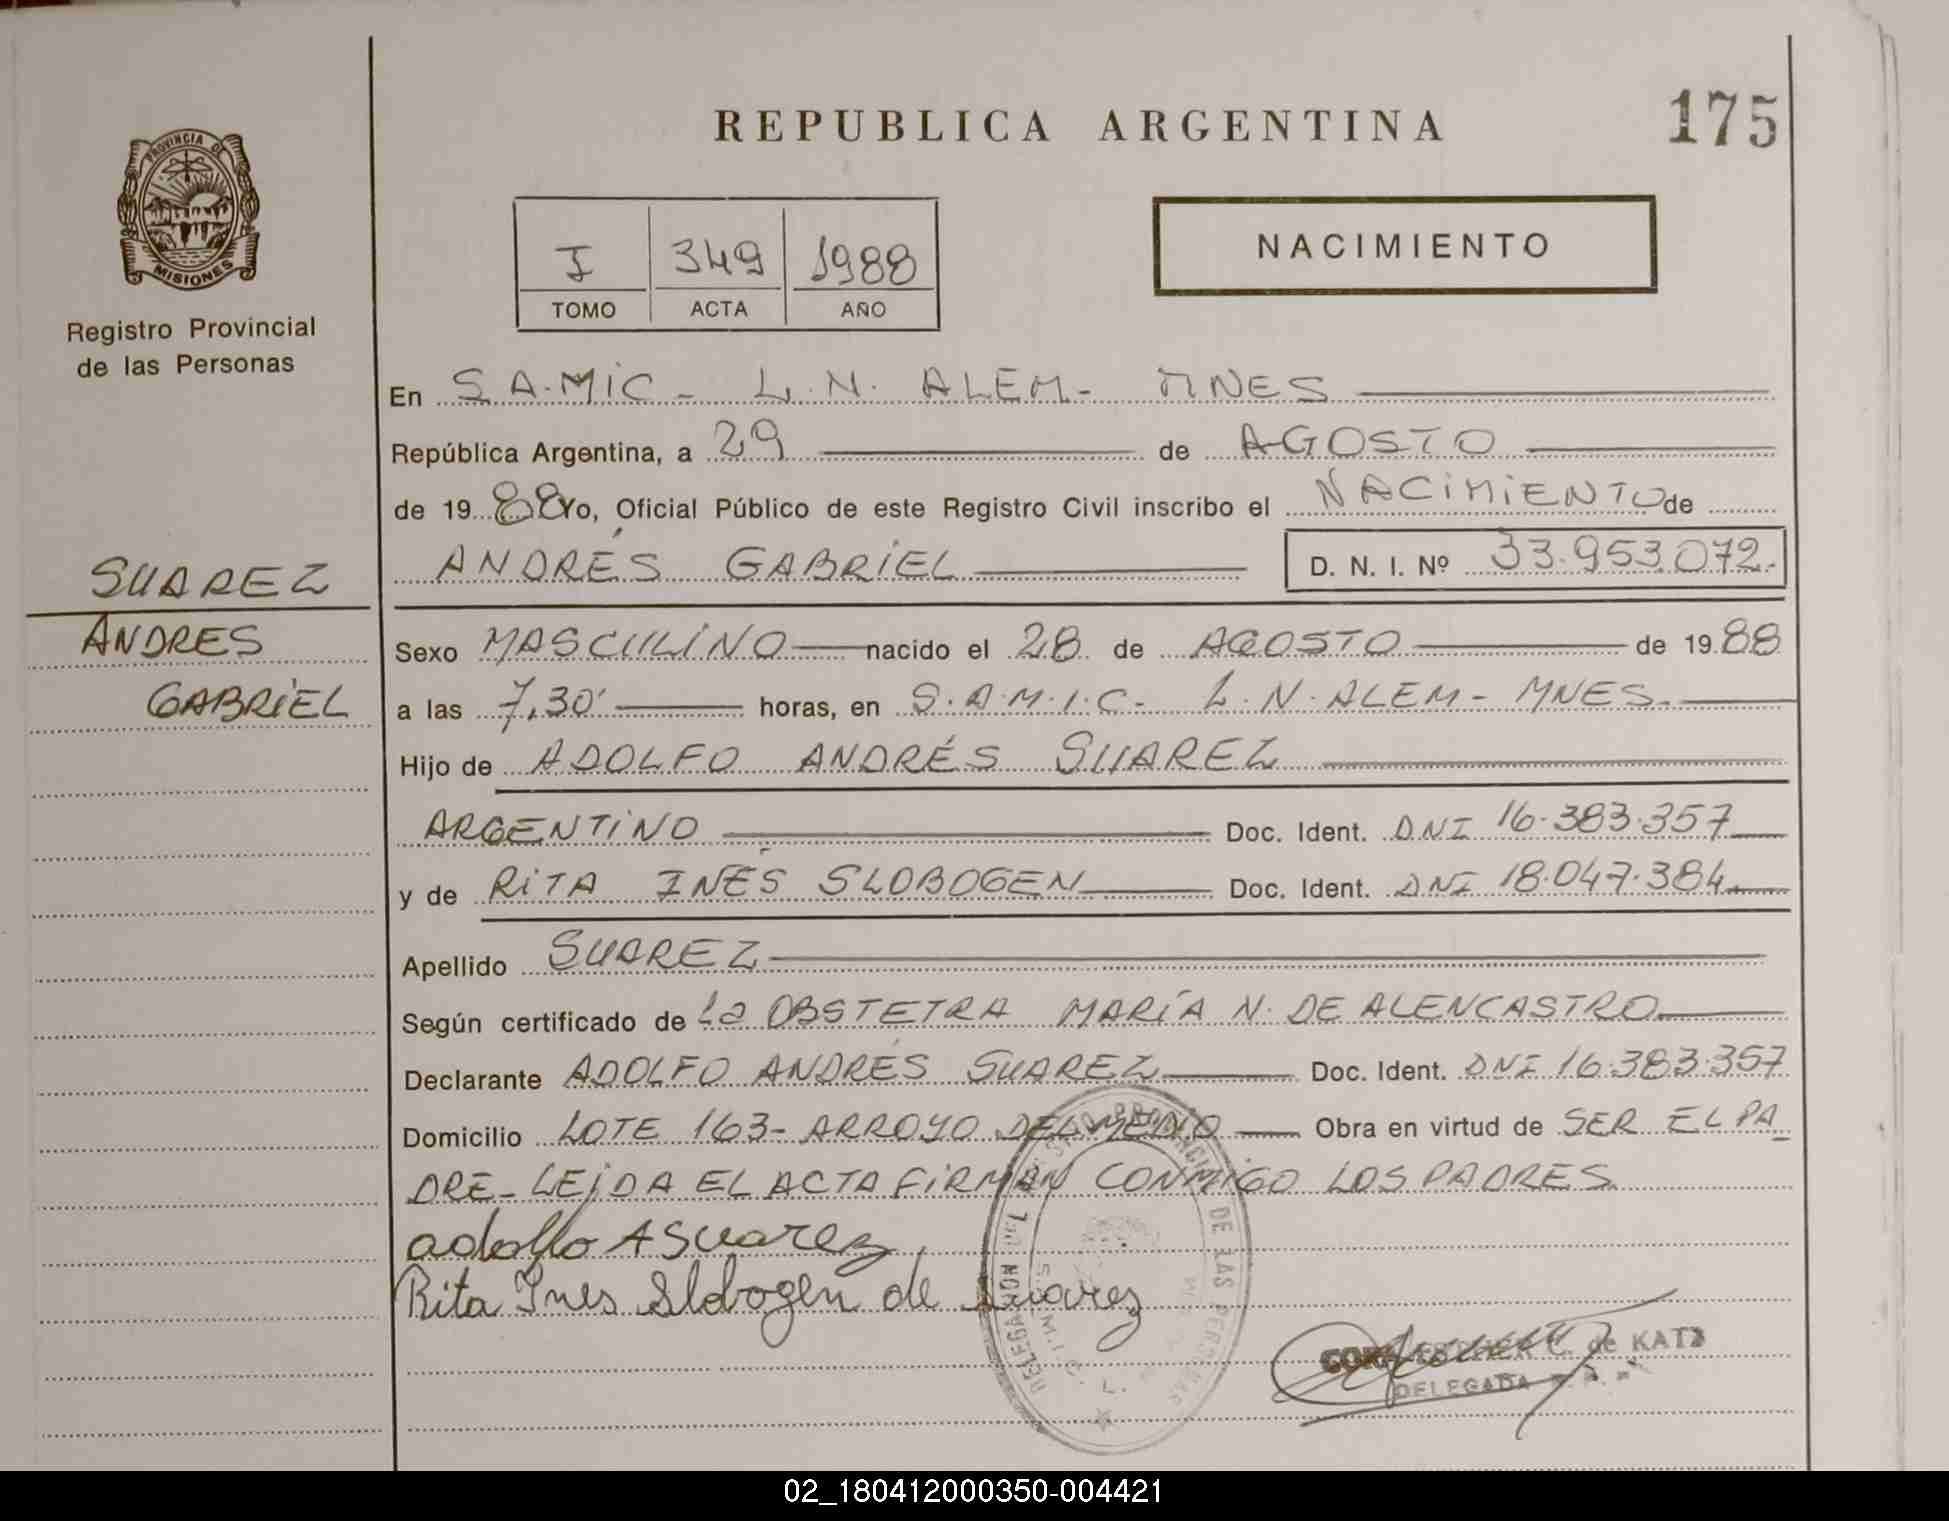 REPUBLICA ARGENTINA
175
PROVINCIA DE
MISIONES
Registro Provincial
de las Personas
I 349 1988
TOMO ACTA AÑO
NACIMIENTO
En S.A.MIC- L.N. ALEM- MNES
República Argentina, a 29 de AGOSTO
de 1988 Yo, Oficial Público de este Registro Civil inscribo el NACIMIENTO de
ANDRÉS GABRIEL D. N. I. Nº 33.953.072.
SUAREZ
ANDRES
GABRIEL
Sexo MASCULINO nacido el 28 de AGOSTO de 1988
a las 7,30' horas, en S.A.M.I.C- L.N.ALEM- MNES.
Hijo de ADOLFO ANDRÉS SUAREZ
ARGENTINO Doc. Ident. DNI 16.383.357
y de RITA INÉS SLOBOGEN Doc. Ident. DNI 18.047.384
Apellido SUAREZ
Según certificado de La OBSTETRA MARÍA N. DE ALENCASTRO
Declarante ADOLFO ANDRÉS SUAREZ Doc. Ident. DNI 16.383.357
Domicilio LOTE 163- ARROYO DEL MEDIO Obra en virtud de SER EL PA
DRE- LEIDA EL ACTA FIRMAN CONMIGO LOS PADRES
adolfo A Suarez
Rita Ines Slobogen de Suarez
de KATZ
DELEGADA
S.A.M.I.C. L.
02_180412000350-004421